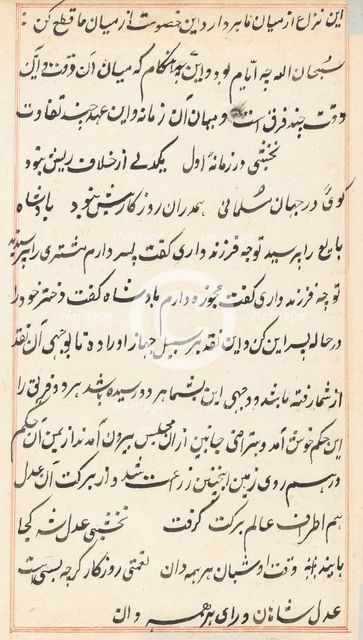 این نزاع از میان ما بردار و این خصومت از میان ما قطع کن
سبحان الله چه ایام بود و این چه هنگام که میان آن وقت و این
وقت چند فرق است و میان آن زمانه و این عهد چند تفاوت
نخشبی در زمانهٔ اول یکدلی از خلاف ریش نبود
کوئی در جهان مسلمانی همدران روزگار بیش نبود بادشاه
بایع را پرسید تو چه فرزند داری گفت پسر دارم مشتری را پرسید
تو چه فرزند داری گفت عجوزه دارم بادشاه گفت دختر خود را
در حاله پسر این کن و این نقد بر سبیل جهاز او را ده تا بوجهی آن نقد
از شما رفته باشد و وجهی این بشما هر دو رسیده باشد هر دو فریق را
این حکم خوش آمد و بتراضی جانبین ازان مجلس بیرون آمدند از یمن آن حکم
در همه روی زمین زر عت شد و از برکت آن عدل
هم اطراف عالم برکت گرفت نخشبی عدل شه کجا
یابند وقت او شبان بر همه دان نعمتی روزگار گرچه بسی است
عدل شاهان ورای همه دان
Heritage
Heritage